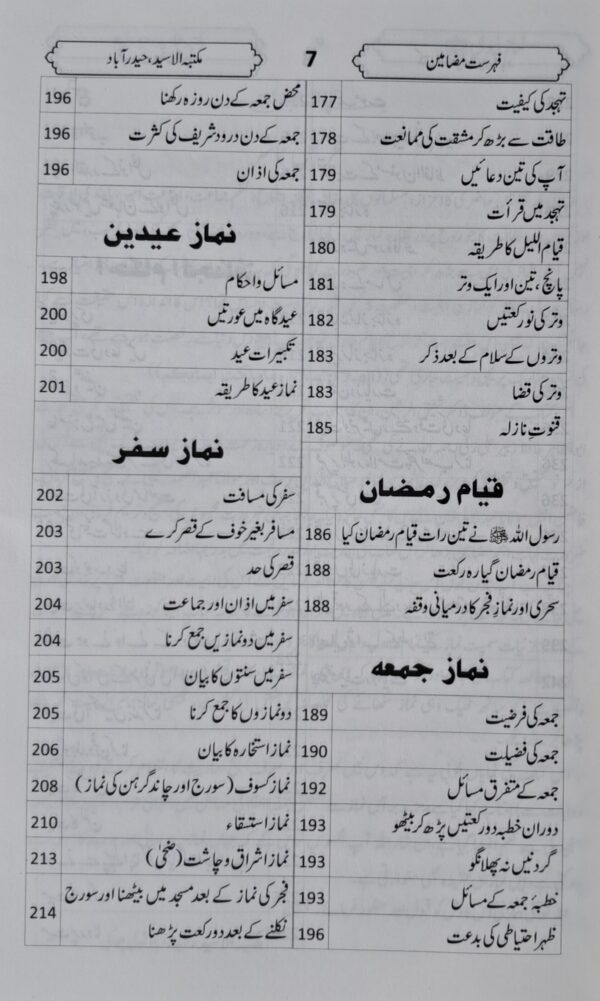 فہرست مضامین
7
مکتبہ الاسید، حیدرآباد
تہجد کی کیفیت 177
طاقت سے بڑھ کر مشقت کی ممانعت 178
آپ کی تین دعائیں 179
تہجد میں قرأت 179
قیام اللیل کا طریقہ 180
پانچ، تین اور ایک وتر 181
وتر کی نو رکعتیں 182
وتروں کے سلام کے بعد ذکر 183
وتر کی قضا 183
قنوتِ نازلہ 185
قیام رمضان
رسول اللہ ﷺ نے تین رات قیام رمضان کیا 186
قیام رمضان گیارہ رکعت 188
سحری اور نمازِ فجر کا درمیانی وقفہ 188
نماز جمعہ
جمعہ کی فرضیت 189
جمعہ کی فضیلت 190
جمعہ کے متفرق مسائل 192
دوران خطبہ دو رکعتیں پڑھ کر بیٹھو 193
گردنیں نہ پھلانگو 193
خطبۂ جمعہ کے مسائل 193
ظہر احتیاطی کی بدعت 196
محض جمعہ کے دن روزہ رکھنا 196
جمعہ کے دن درود شریف کی کثرت 196
جمعہ کی اذان 196
نماز عیدین
مسائل و احکام 198
عیدگاہ میں عورتیں 200
تکبیرات عید 200
نماز عید کا طریقہ 201
نماز سفر
سفر کی مسافت 202
مسافر بغیر خوف کے قصر کرے 203
قصر کی حد 203
سفر میں اذان اور جماعت 204
سفر میں دو نمازیں جمع کرنا 204
سفر میں سنتوں کا بیان 205
دو نمازوں کا جمع کرنا 205
نماز استخارہ کا بیان 206
نماز کسوف (سورج اور چاند گرہن کی نماز) 208
نماز استسقاء 210
نماز اشراق و چاشت (ضحیٰ) 213
فجر کی نماز کے بعد مسجد میں بیٹھنا اور سورج
نکلنے کے بعد دو رکعت پڑھنا 214